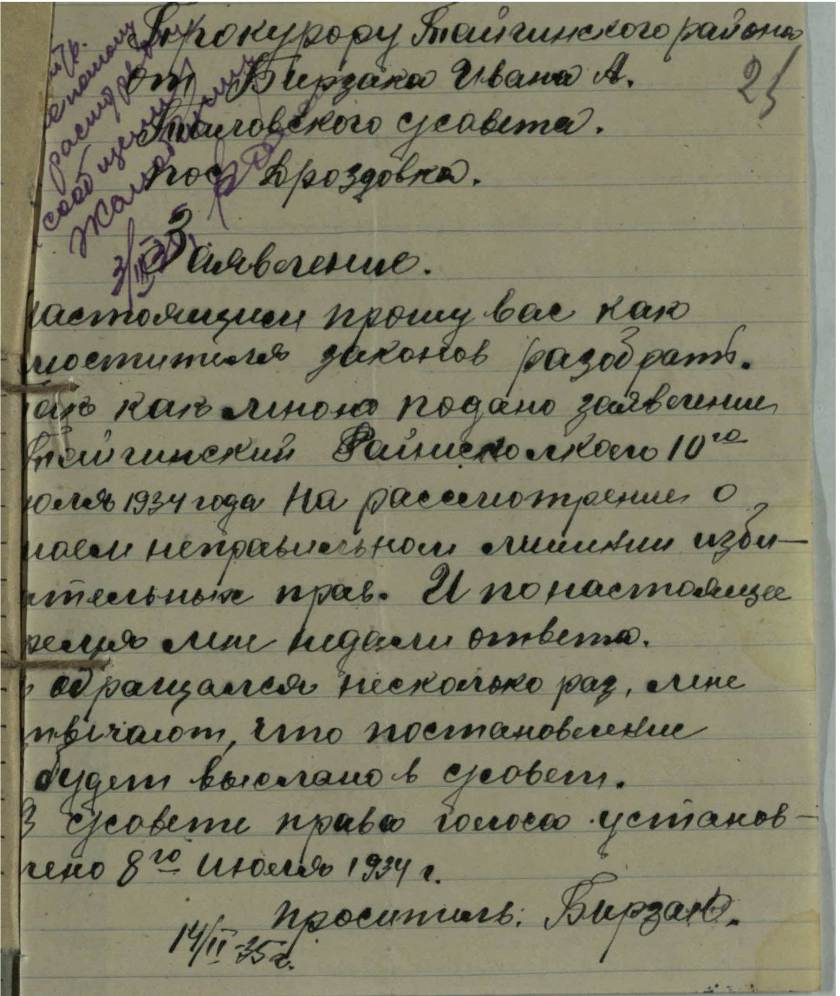 Прокурору Тайгинского района
от Бирзака Ивана А.
25
Таловского с/совета.
пос Дроздовка.
сообщении
3/III 35г.
Заявление.
настоящим прошу вас как
законов разобрать.
так как мною подано заявление
Тайгинский 10го
юля 1934 года на рассмотрение о
моем неправильном лишении изби-
тельных прав. И по настоящее
ремя мне недали ответа.
обращался несколько раз, мне
твечают, что постановление
будет выслано в с/совет.
В с/совете права голоса установ-
лено 8го июля 1934 г.
проситель: Бирзак.
14/II-35г.